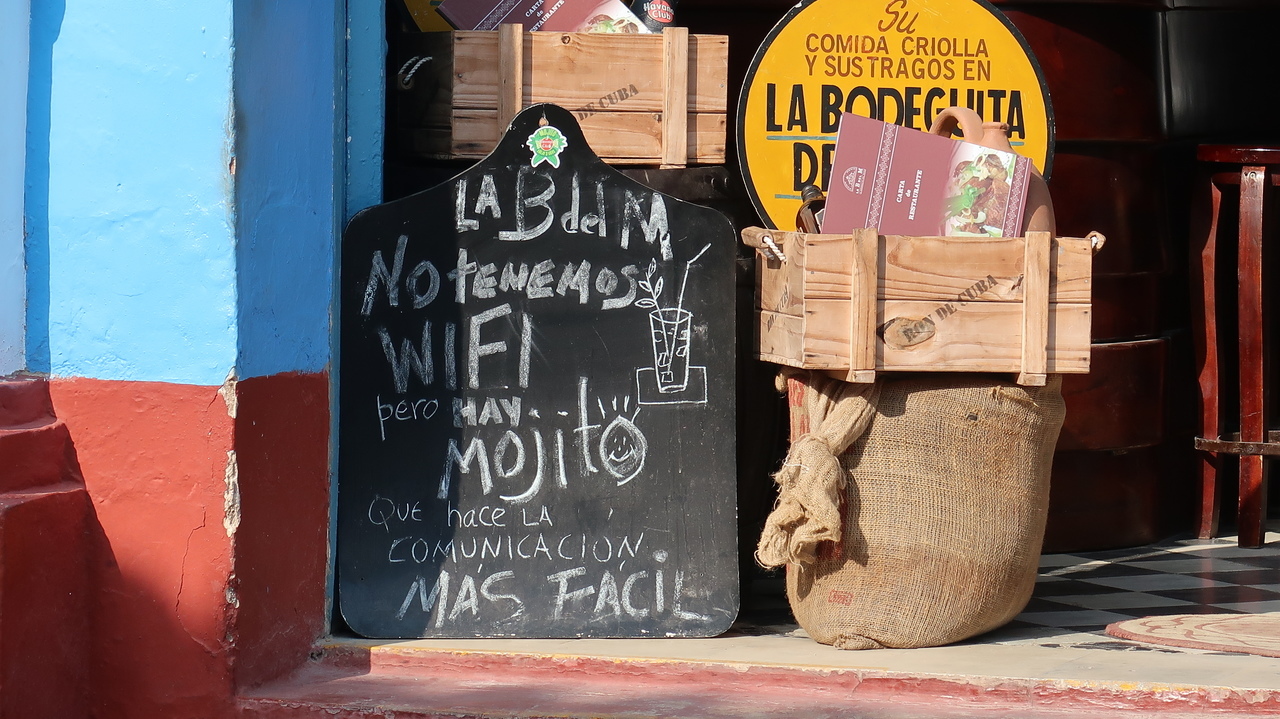 CARTA
RESTAURANTE
Havana
Club
DE CUBA
Su
COMIDA CRIOLLA
Y SUS TRAGOS EN
LA BODEGUITA
DE
CARTA
de
RESTAURANTE
RON DE CUBA
LA B del M
NO TENEMOS
WIFI
pero HAY...
MOJITO
QUE hace LA
COMUNICACIÓN
MÁS FÁCIL